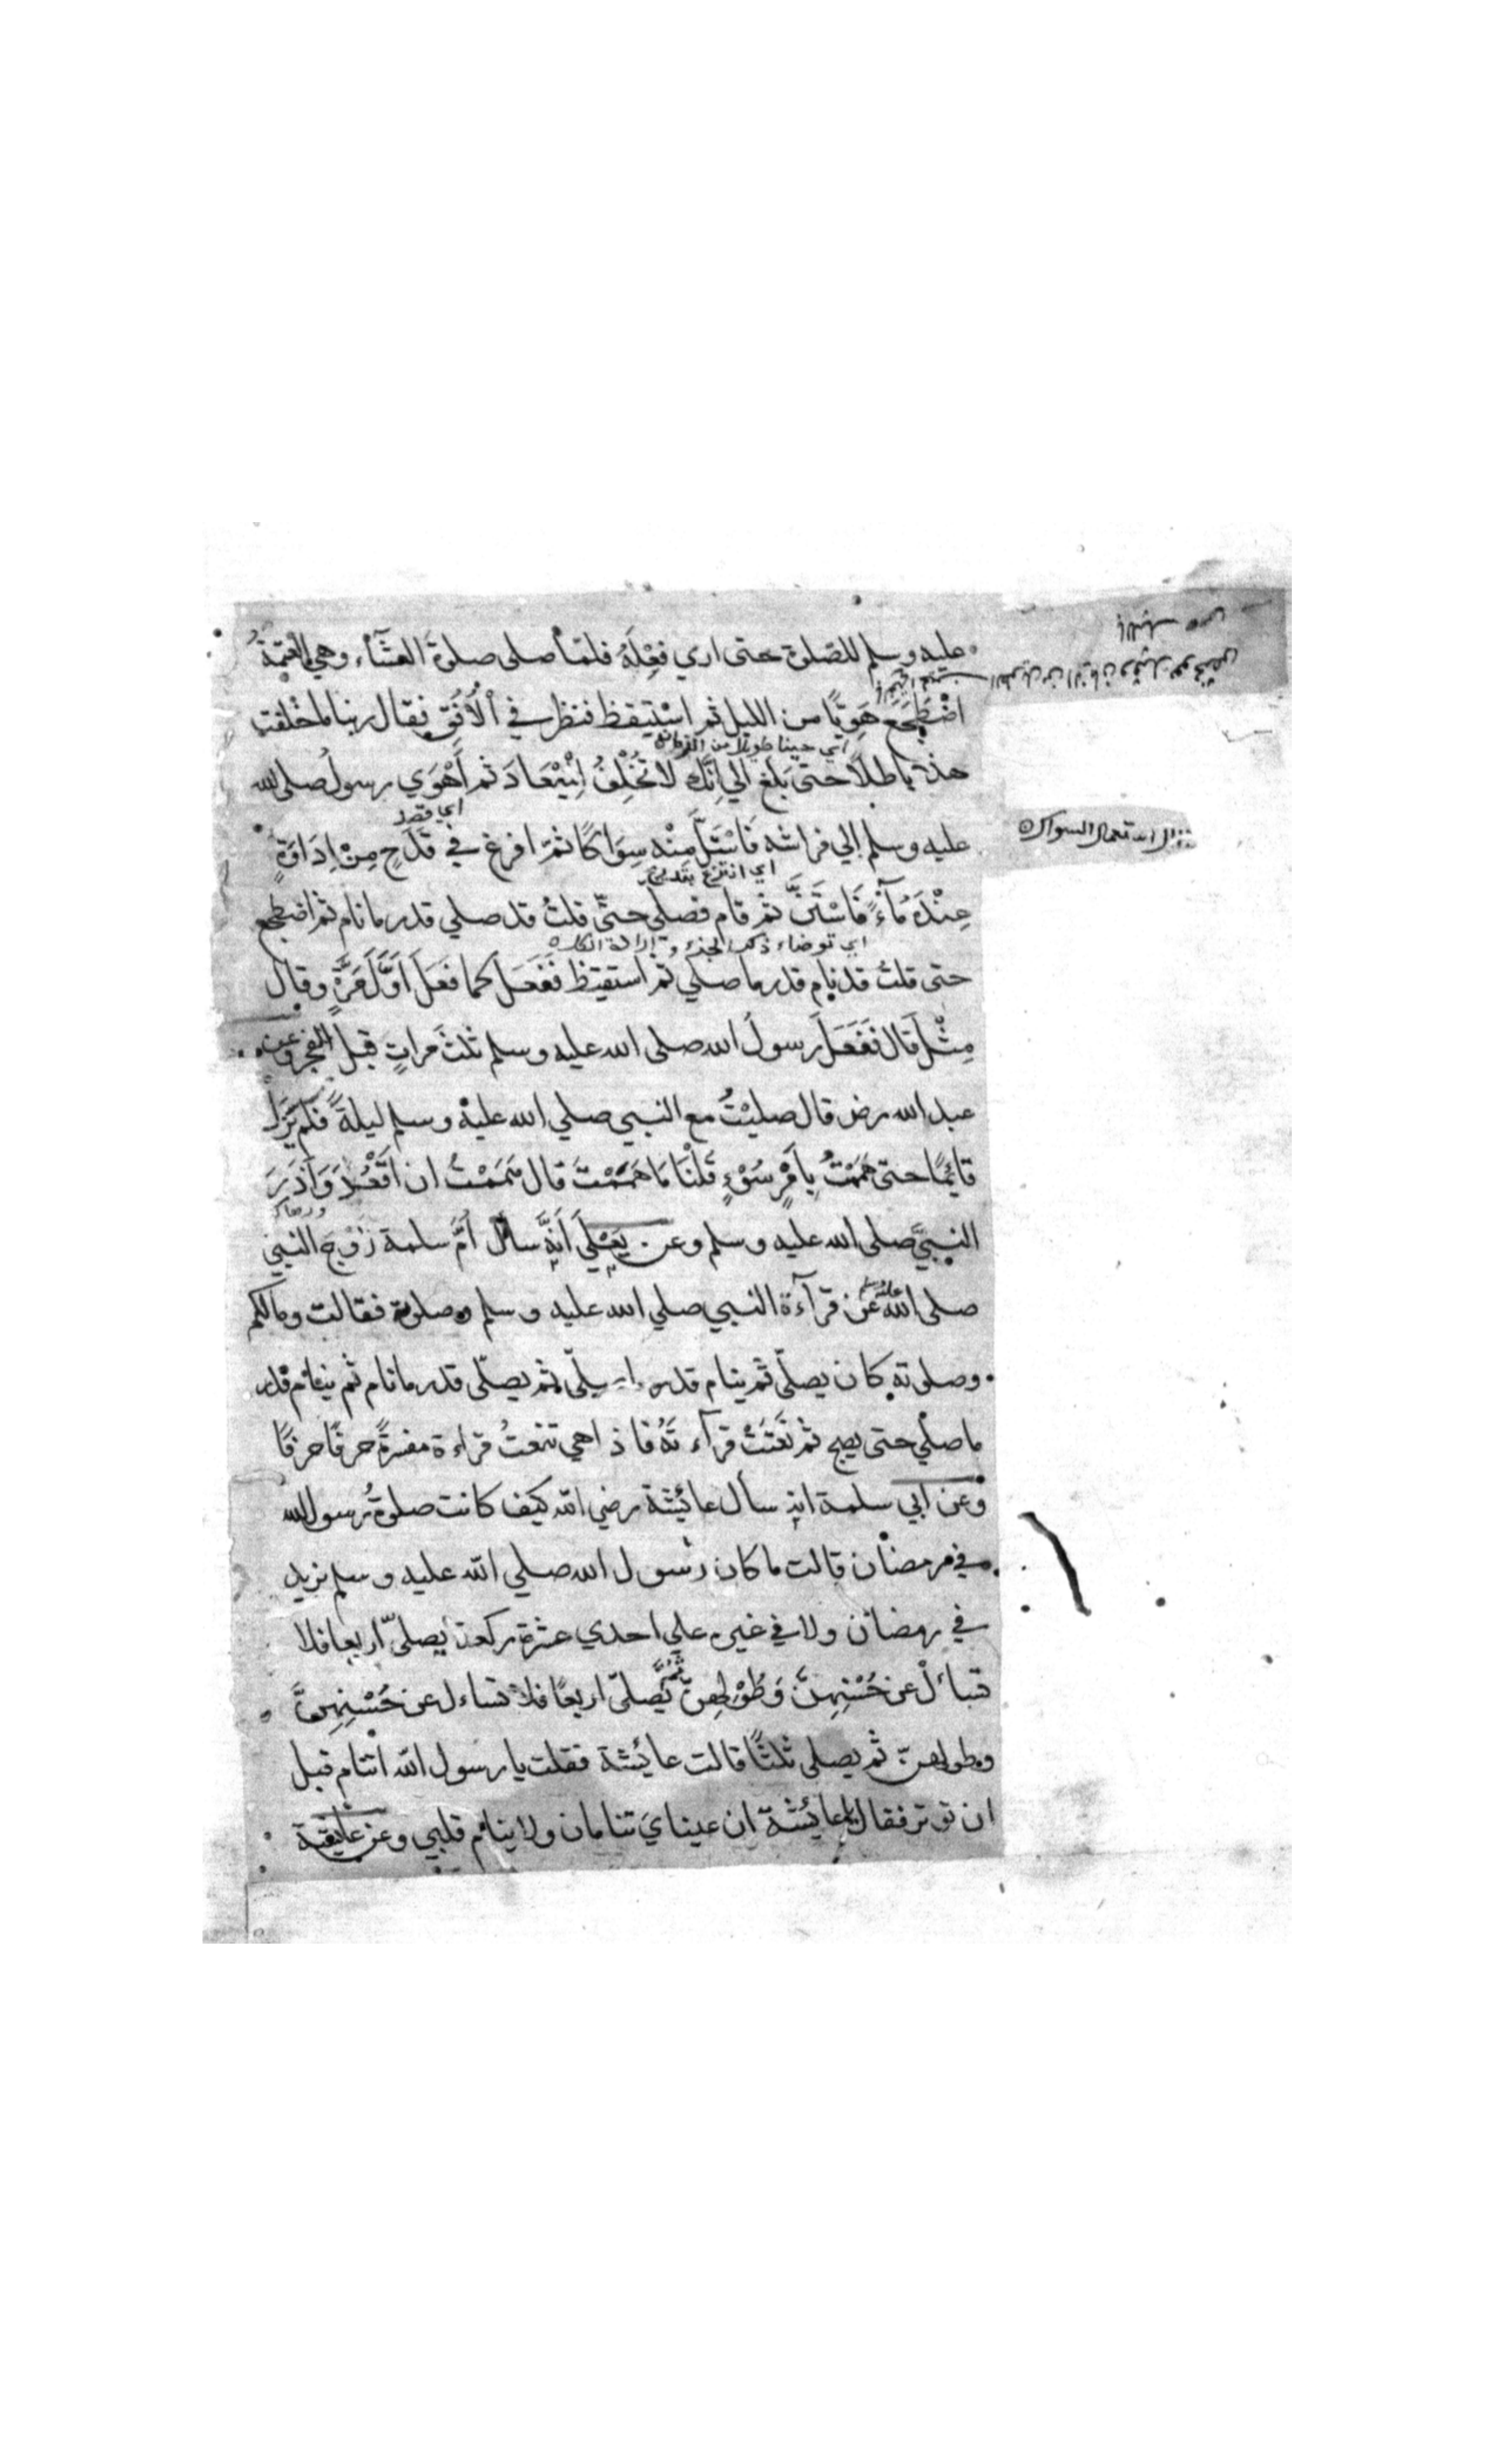 عليه وسلم للصلوة حتى اري فِعْلَهُ فلمّا صلى صلوةَ العشآء وهي العتمةُ
اضْطَجَعَ هَوِيًّا من الليل ثم اسْتَيقظ فنظر في الْاُفُقِ فقال ربنا ما خلقت
اي حينا طويلا من الزمان
هذا باطلاً حتى بَلَغ الي اِنَّك لا تُخْلِفُ الْمِيْعَادَ ثم أَهْوَي رسول صلى الله
اي قصد
عليه وسلم الي فراشه فَاسْتَلَّ مِنْه سِوَاكًا ثمّ افرغ في قَدَحٍ مِنْ اِدَاوَةٍ
اي انتزع بتدريج
عِنْدَهُ مآءً فَاسْتَنَّ ثم قام فصلي حتىّ قلتُ قد صلي قدر ما نام ثم اضطجع
حتى قلتُ قد نام قدر ما صلي ثم استقيظ فَفَعَلَ كما فعَلَ اَوَّلَ مَرَّةٍ وقال
مِثْلَ قَال فَفَعَلَ رسولُ الله صلى الله عليه وسلم ثلثَ مراتٍ قبل الفجر وعن
عبد الله رض قال صليْتُ مع النبي صلي الله عليه وسلم ليلةً فلم يَزَل
قائِمًا حتى هَمَمْتُ بِاَمْرِ سُوْءٍ قلْنَا مَا هَمَمْتَ قال هَمَمْتُ ان اَقْعُدَ وَاَذَرَ
النبيَّ صلى الله عليه وسلم وعن يَعْلَي اَنهَّ سأل أمَّ سلمة زَوْجَ النبي
صلى الله عليه وسلم عَن قرآءة النبي صلي الله عليه وسلم وصلوته فقالت وما لكم
وصلوته كان يصلّي ثم ينام قدر ما صلّي ثم يصلّي قدر ما نام ثم ينام قدر
ما صلّي حتى يصبح ثم نَعَتَتْ قرآءتَهُ فاذا هي تنعتُ قراءة مفسرةً حرفًا حرفًا
وعن ابي سلمة انه سأل عائشة رضي الله كيف كانت صلوةُ رسول الله
في رمضان قالت ما كان رسول الله صلي الله عليه وسلم يزيد
في رمضان ولا في غيره علي احدي عشرة ركعة يصليّ اربعا فلا
تسأَلْ عن حُسْنِهِنَّ وَطُوْلِهِنّ ثُمَّ يُصلّي اربعًا فلا تساءل عن حُسْنِهِنَّ
وطولهنّ ثم يصلى ثلثًا قالت عائشة فقلت يا رسول الله أتنام قبل
ان توتر فقال يا عائشة ان عيناي تنامان ولا ينام قلبي وعن عائشة